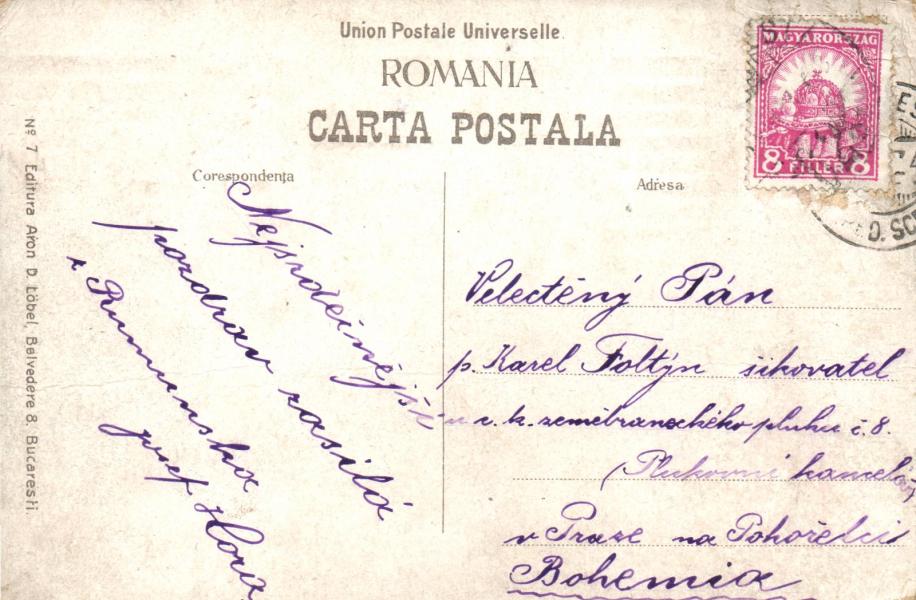 Union Postale Universelle
ROMANIA
CARTA POSTALA
Corespondenţa
Adresa
MAGYARORSZÁG
8 FILLÉR 8
Nejsrdečnější
pozdrav zasílá
z Rumunska
Josef
Velectěný Pán
p. Karel Foltýn šikovatel
u c. k. zeměbraneckého pluku č. 8.
(Plukovní kancelář)
v Praze na Pohořelci
Bohemia
Nº 7 Editura Aron D. Löbel, Belvedere 8. Bucaresti.